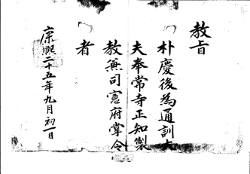 教旨
朴慶後為通訓大
夫奉常寺正知製
教兼司憲府掌令
者
康熙二十五年九月初一日